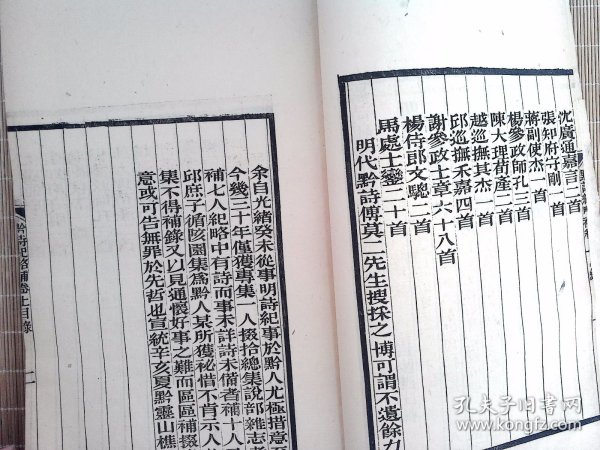 沈廣通嘉言二首
張知府守剛一首
蔣副使杰一首
楊參政師孔三首
陳大理荀產二首
越巡撫其杰一首
邱巡撫禾嘉四首
謝參政士章六十八首
楊侍郎文驄二首
馬處士鑾二十首
明代黔詩傅莫二先生搜採之博可謂不遺餘力
余自光緒癸未從事明詩紀事於黔人尤極措意至
今幾三十年僅獲專集一人掇拾總集說部雜志者
補七人紀略中有詩而事未詳詩未備者補十人
邱庶子循陔園集爲黔人某所獲祕惜不肯示人
集不得補錄又以見通懷好事之難而區區補掇
意或可告無罪於先哲也宣統辛亥夏黔靈山樵
黔詩紀略補卷上目錄
二
孔夫子旧书网
kongfz.com